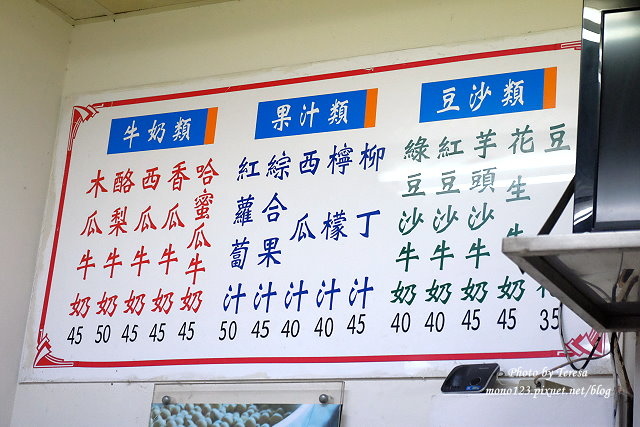 牛奶類
木瓜牛奶 45
酪梨牛奶 50
西瓜牛奶 45
香瓜牛奶 45
哈蜜瓜牛奶 45
果汁類
紅蘿蔔汁 50
綜合果汁 45
西瓜汁 40
檸檬汁 40
柳丁汁 45
豆沙類
綠豆沙牛奶 40
紅豆沙牛奶 40
芋頭沙牛奶 45
花生牛奶 45
豆 35
Photo by Teresa
mono123.pixnet.net/blog